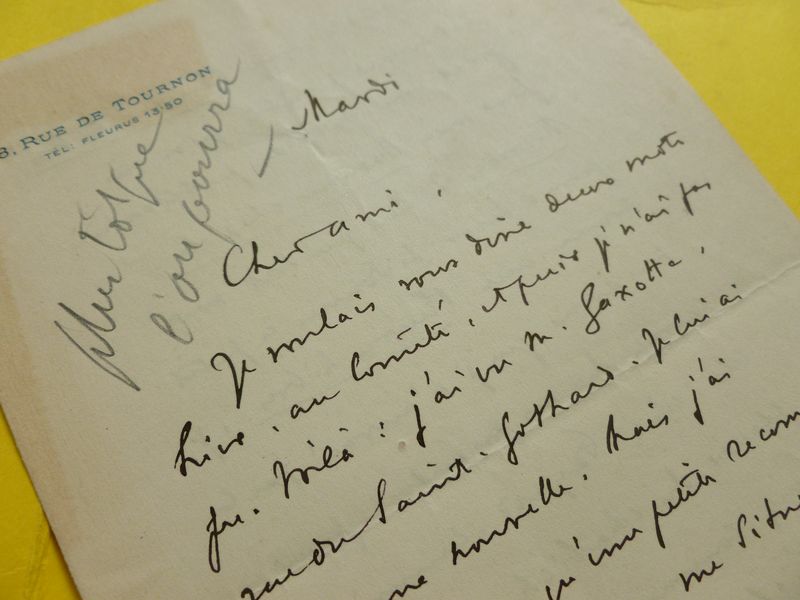 8, RUE DE TOURNON
TÉL: FLEURUS 13-50
plus tôt que
l'on pourra
Mardi
Cher ami,
Je voulais vous dire deux mots
hier, au Comité, et puis je n'ai pas
pu. Voilà : j'ai vu M. Gaxotte,
rue du Saint-Gothard. Je lui ai
une nouvelle. Mais j'ai
qu'une petite recom
me situe